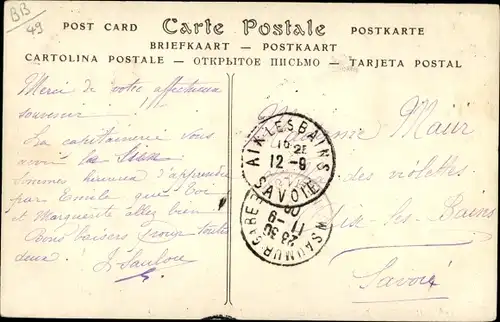 BB
49
POST CARD Carte Postale POSTKARTE
BRIEFKAART — POSTKAART
CARTOLINA POSTALE — ОТКРЫТОЕ ПИСЬМО — TARJETA POSTAL
Merci de votre affectueux
souvenir.
La capitainerie vous
la
sommes heureux d'apprendre
par Emile que toi
et Marguerite allez bien.
Bons baisers pour toutes
deux.
Madame Maür
des violettes
Aix les-Bains
Savoie
AIX-LES-BAINS
12-9
SAVOIE
SAUMUR-GARE
23 30
11-9